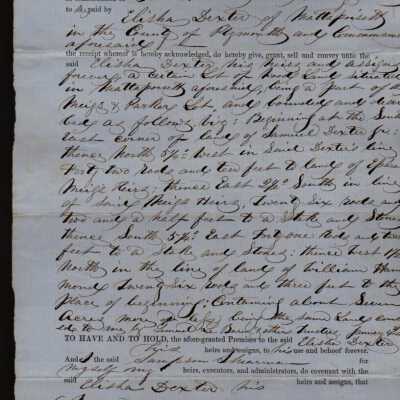 to me paid by Elisha Dexter of Mattapoisett
in the County of Plymouth and Commonwealth
aforesaid
the receipt whereof is hereby acknowledged, do hereby give, grant, sell and convey unto the
said Elisha Dexter, his Heirs and Assigns
forever, a certain Lot of Wood Land situated
in Mattapoisett aforesaid, being a part of the
Meigs & Parker Lot, and bounded and
bed as follows viz: Beginning at the South
east corner of land of Samuel Dexter Jr:
thence North 5½° West in Said Dexter's line
Forty two rods and ten feet to land of
Meigs Heirs; thence East 2½° South in line
of said Meigs Heirs, twenty six rods and
two and a half feet to a Stake and Stones
thence South 5½° East Forty one Rods and
feet to a Stake and Stones: thence West
North in the line of land of William Ham
mond Twenty six rods and three feet to the
Place of beginning; Containing about Seven
Acres more or less, being the same Land
to me by
TO HAVE AND TO HOLD, the afore-granted Premises to the said Elisha Dexter
his heirs and assigns, to his use and behoof forever.
And I the said Sampson for
myself my heirs, executors, and administrators, do covenant with the
said Elisha Dexter his heirs and assigns, that